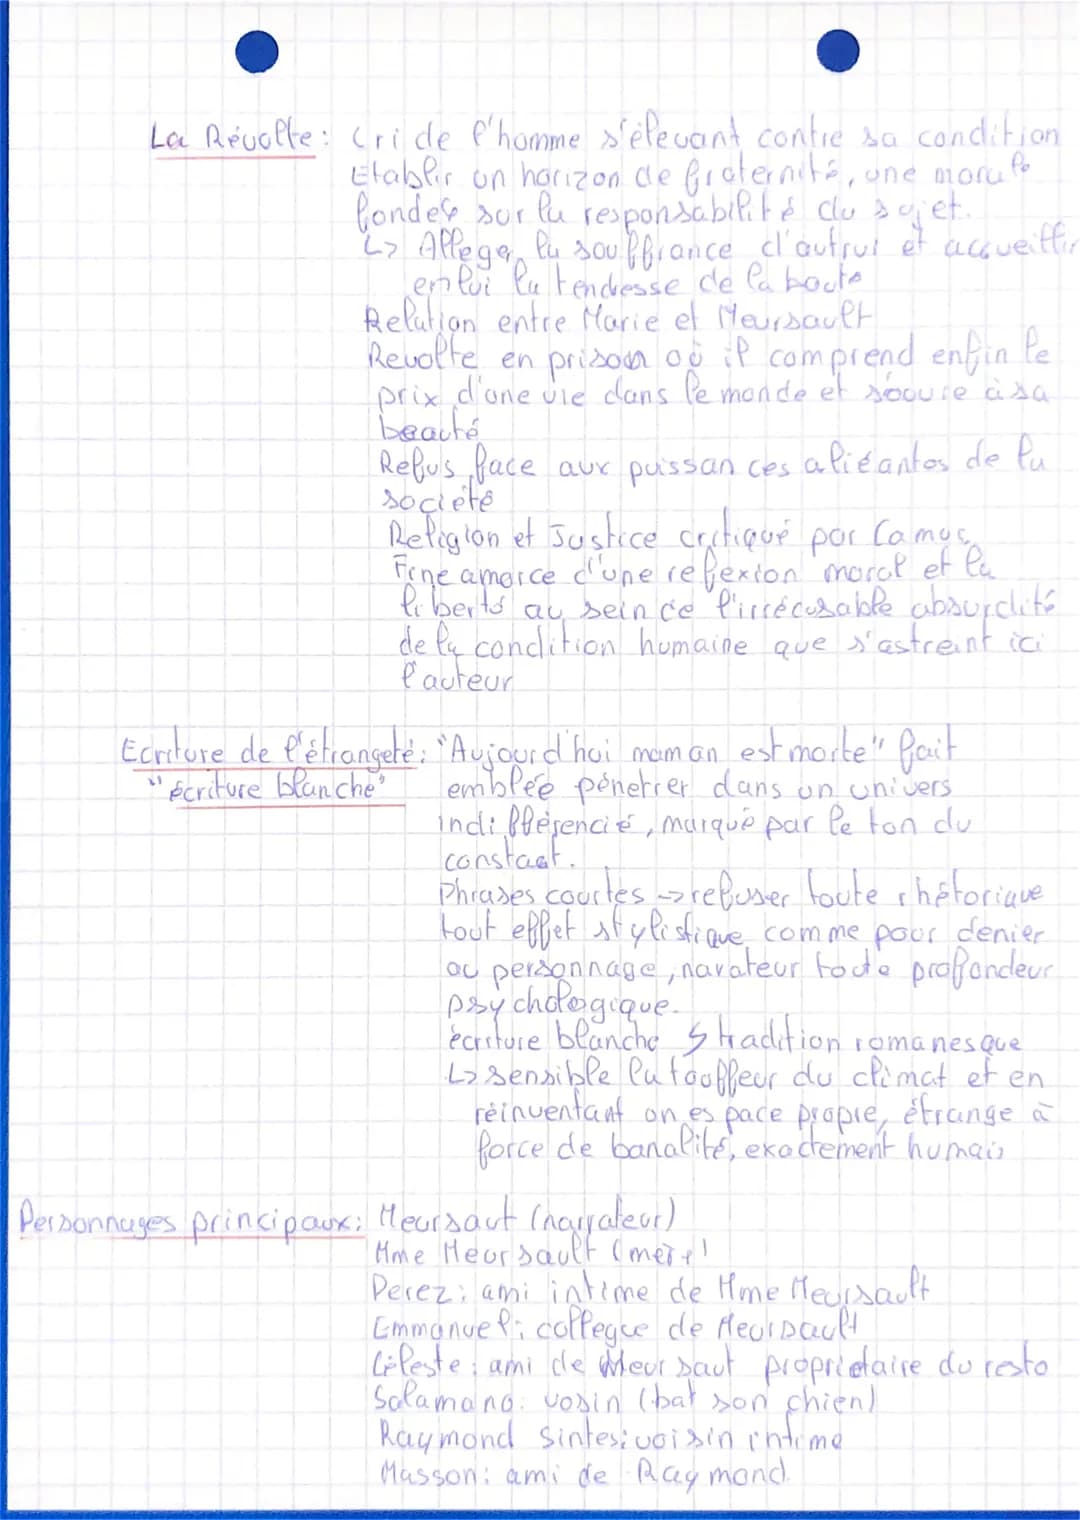 La Révolte: Cri de l'homme s'élevant contre sa condition
Etablir un horizon de fraternité, une morale
fondée sur la responsabilité du sujet.
↳ Alleger la souffrance d'autrui et accueillir
en lui la tendresse de la boute
Relation entre Marie et Meursault
Revolte en prison où il comprend enfin le
prix d'une vie dans le monde et s'ouvre à sa
beauté
Refus face aux puissances aliéantes de la
société
Religion et Justice critiqué par Camus
Fine amorce d'une reflexion moral et la
liberté au sein de l'irrécusable absurdité
de la condition humaine que s'astreint ici
l'auteur
Ecriture de l'étrangeté: "Aujourd'hui maman est morte" fait
"écriture blanche" emblée pénetrer dans un univers
indifférencié, marqué par le ton du
constat.
Phrases courtes -> refuser toute rhétorique
tout effet stylistique comme pour denier
au personnage, narateur toute profondeur
psychologique.
écriture blanche ↯ tradition romanesque
↳ sensible la touffeur du climat et en
réinventant un espace propre, étrange à
force de banalité, exactement humain
Personnages principaux: Meursaut (narrateur)
Mme Meursault (mère)
Perez: ami intime de Mme Meursault
Emmanuel: collegue de Meursault
Céleste: ami de Meursaut proprietaire du resto
Salamano: vosin (bat son chien)
Raymond Sintes: voisin intime
Masson: ami de Raymond.